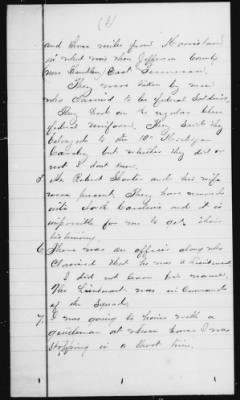 (2)
and three miles from Morristown
in what was then Jefferson County
now Hamblen, East Tennessee.
They were taken by men
who claimed to be federal Soldiers.
They had on the regular blue
federal uniform. They said they
belonged to the 10" Michigan
Cavalry but whether they did or
not I don't know.
5 Mr Robert and his wife
were present. They have removed
into North Carolina and it is
impossible for me to get their
testimony.
6 There was an officer along who
claimed that he was a Lieutenant
I did not learn his name.
The Lieutenant was in Command
of the Squad.
7 I was going to home with a
gentleman at whose house I was
stopping in a short time,